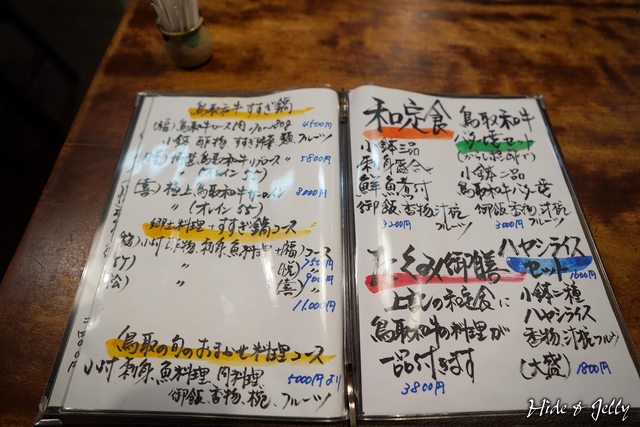 鳥取和牛すすぎ鍋
(福)鳥取牛ロース肉 4500円
小鉢 酢物 すすぎ鍋 麺 フルーツ
特選 鳥取和牛リブロース 〃 5800円
〃 (オレイン55)
(喜)極上鳥取和牛サーロイン 8000円
〃 (オレイン55)
郷土料理+すすぎ鍋コース
小付 酢物、刺身、魚料理+(福)コース
〃 7500円
〃 〃
(松) 〃 (喜)〃
11,000円
鳥取の旬のおまかせ料理コース
小付 刺身、魚料理、肉料理 5000円より
御飯、香物、椀、フルーツ
和定食
小鉢二品
刺身盛合
鮮魚煮付
御飯、香物、汁椀
フルーツ
3200円
鳥取和牛
小鉢二品
鳥取和牛
御飯、香物、汁椀
フルーツ
3000円
たくみ御膳
上記の和定食に
鳥取和牛の料理が
一品付きます
3800円
ハヤシライス
セット 1600円
小鉢二種
ハヤシライス
香物、汁椀、フルーツ
(大盛) 1800円
Hide & Jelly